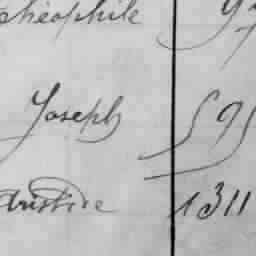 Théophile
Joseph 595
Aristide 1311